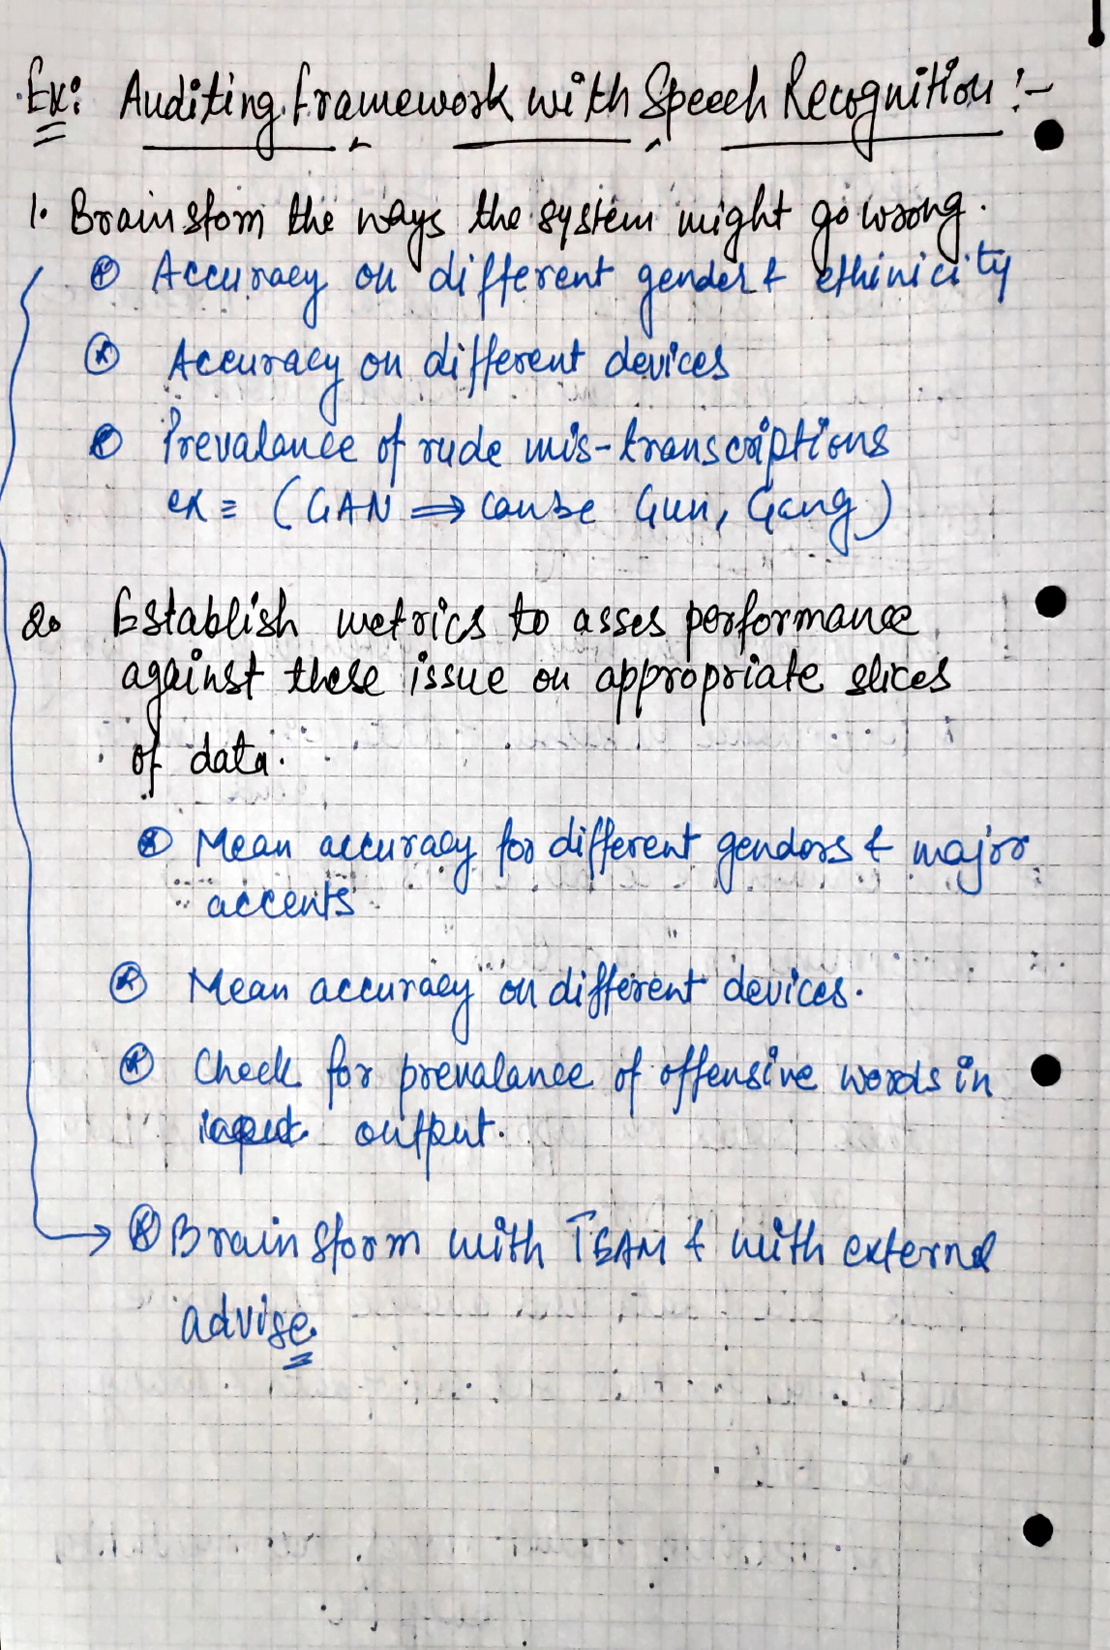 Ex: Auditing framework with Speech Recognition :-
1. Brainstorm the ways the system might go wrong.
Accuracy on different gender & ethinicity
Accuracy on different devices
Prevalance of rude mis-transcriptions
ex = (GAN ⇒ can be Gun, Gang)
2. Establish metrics to asses performance
against these issue on appropriate slices
of data.
Mean accuracy for different gendors & major
accents
Mean accuracy on different devices.
Check for prevalance of offensive words in
output.
→ Brainstorm with TEAM & with external
advise